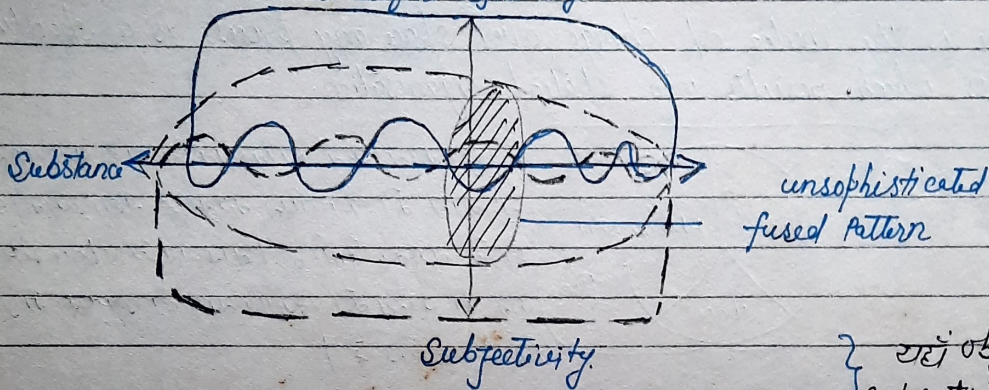 Substance
unsophisticated
fused Pattern
Subjectivity.
यहाँ